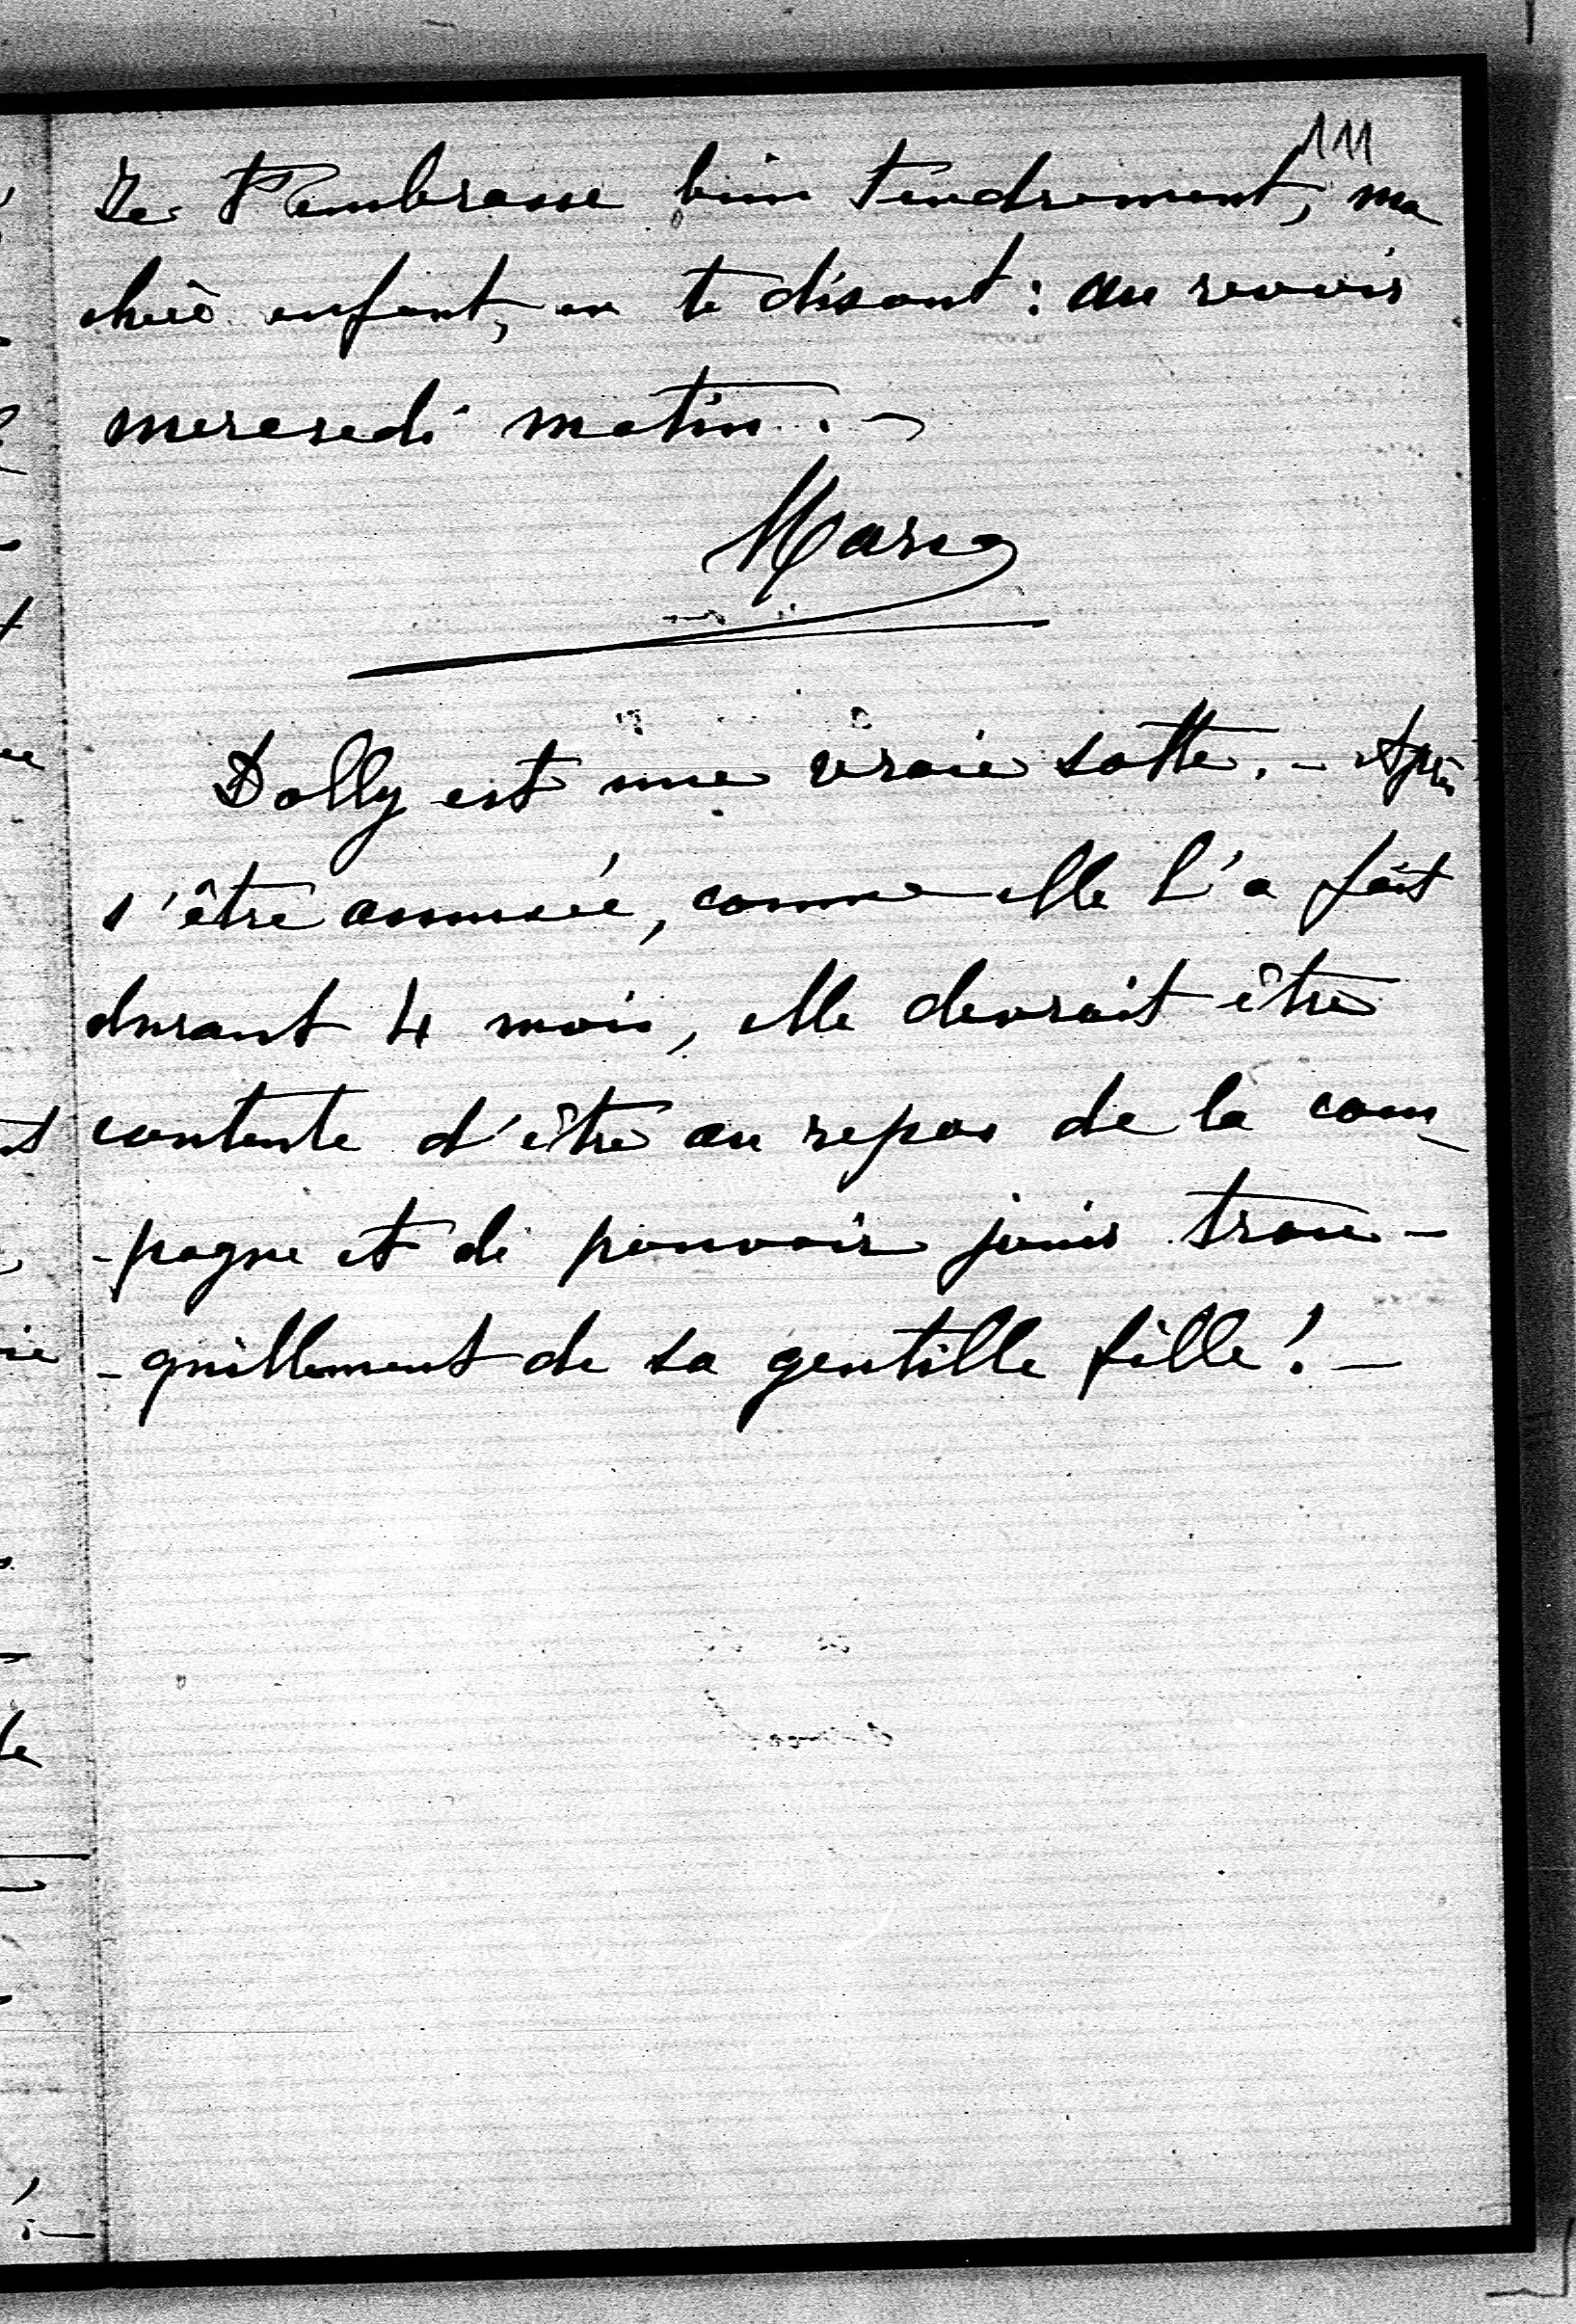 111
Je t'embrasse bien tendrement, ma
chère enfant, en te disant : au revoir
mercredi matin. -
Marc
Dolly est une vraie sotte. - Après
s'être amusée, comme elle l'a fait
durant 4 mois, elle devrait être
contente d'être au repos de la cam-
-pagne et de pouvoir jouir tran-
-quillement de sa gentille fille ! -